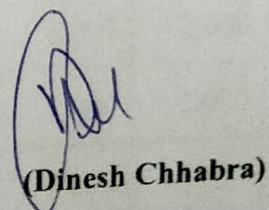 (Dinesh Chhabra)